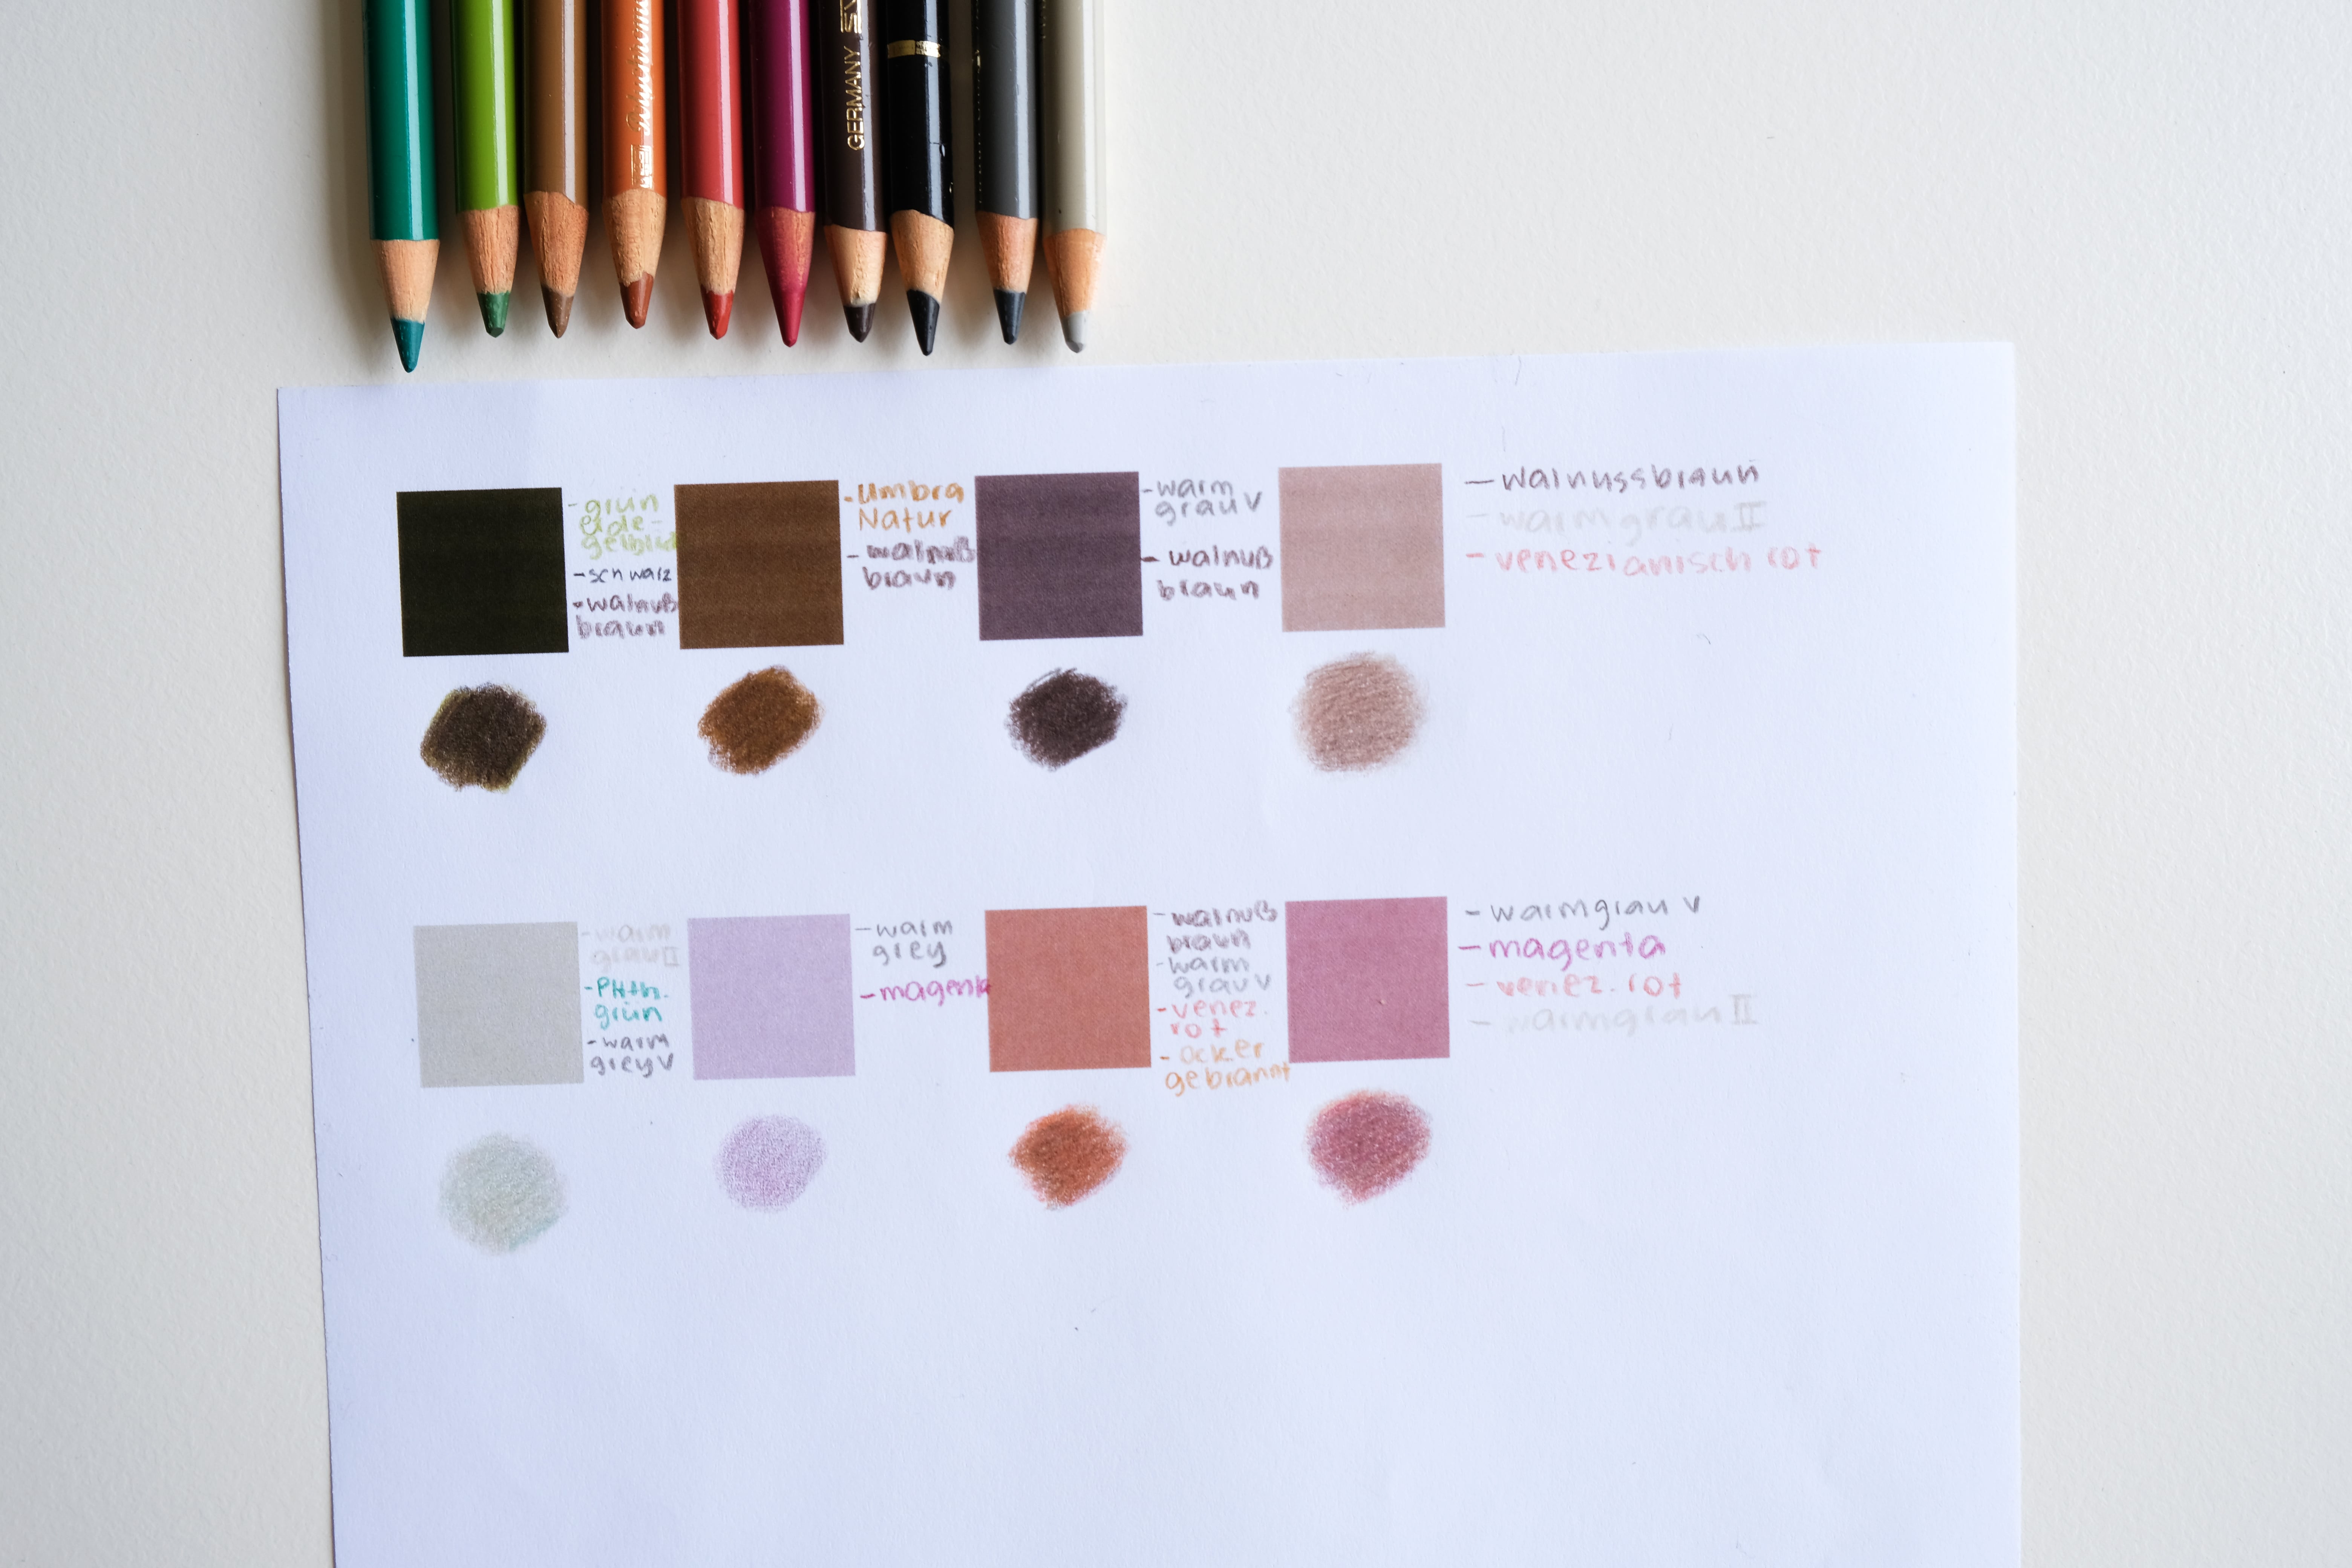 Polychromo
GERMANY
- grün
erde-
gelblich
- schwarz
- walnuß
braun
- Umbra
Natur
- walnuß
braun
- warm
grau V
- walnuß
braun
- walnussbraun
- warmgrau II
- venezianisch rot
- warm
grau II
- Phth.
grün
- warm
grey V
- warm
grey
- magenta
- walnuß
braun
- warm
grau V
- venez.
rot
- ocker
gebrannt
- warmgrau V
- magenta
- venez. rot
- warmgrau II